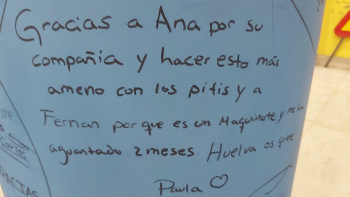 Gracias a Ana por su
compañía y hacer esto más
ameno con los pitis y a
Fernan porque es un Maquinote y me
aguantado 2 meses. Huelva os
Paula ♡